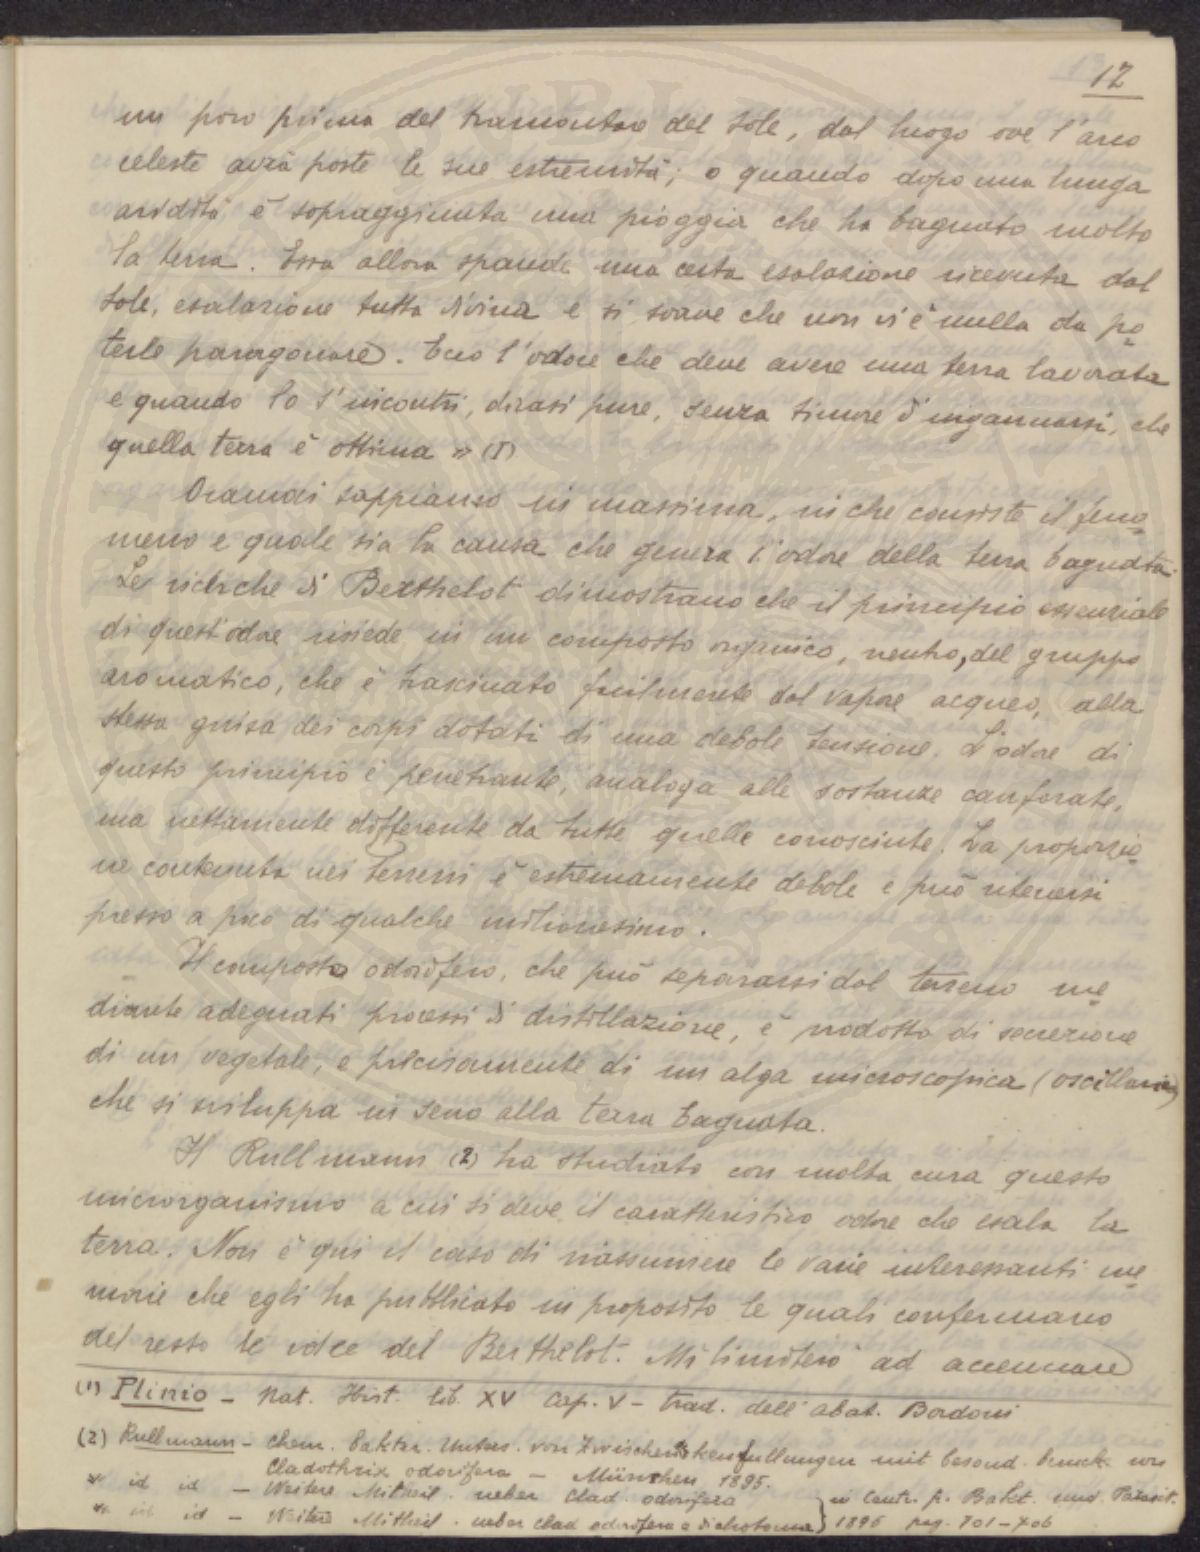 12
un poco prima del tramontare del sole, dal luogo ove l'arco
celeste avrà poste le sue estremità; o quando dopo una lunga
aridità è sopraggiunta una pioggia che ha bagnato molto
la terra. Essa allora spande una certa esalazione ricevuta dal
sole, esalazione tutta divina e sì soave che non vi è nulla da po=
terle paragonare. Ecco l'odore che deve avere una terra lavorata
e quando lo s'incontri, dicasi pure, senza timore d'ingannarsi, che
quella terra è ottima » (1)
Oramai sappiamo in massima, in che consiste il feno=
meno e quale sia la causa che genera l'odore della terra bagnata.
Le ricerche di Berthelot dimostrano che il principio essenziale
di quest'odore risiede in un composto organico, neutro, del gruppo
aromatico, che è trascinato facilmente dal vapore acqueo, alla
stessa guisa dei corpi dotati di una debole tensione. L'odore di
questo principio è penetrante, analoga alle sostanze canforate,
ma nettamente differente da tutte quelle conosciute. La proporzio=
ne contenuta nei terreni è estremamente debole e può ritenersi
presso a poco di qualche milionesimo.
Il composto odorifero, che può separarsi dal terreno me=
diante adeguati processi di distillazione, è prodotto di secrezione
di un vegetale, e precisamente di un alga microscopica (oscillaria)
che si sviluppa in seno alla terra bagnata.
Il Rullmann (2) ha studiato con molta cura questo
microrganismo a cui si deve il caratteristico odore che esala la
terra. Non è qui il caso di riassumere le varie interessanti me=
morie che egli ha pubblicato in proposito le quali confermano
del resto le idee del Berthelot. Mi limiterò ad accennare
(1) Plinio - Nat. Hist. lib. XV Cap. V - trad. dell'abat. Bordoni
(2) Rullmann - Chem. bakter. Unters. von Zwischendeckenfullungen mit besond. von
Cladothrix odorifera - München 1895.
» id id - Weitere Mitteil. ueber Clad. odorifera
» id id - Weitere Mittheil. ueber Clad odorifera e dichotoma } in Centr. f. Bakt. und Parasit.
1896 pag. 701-706